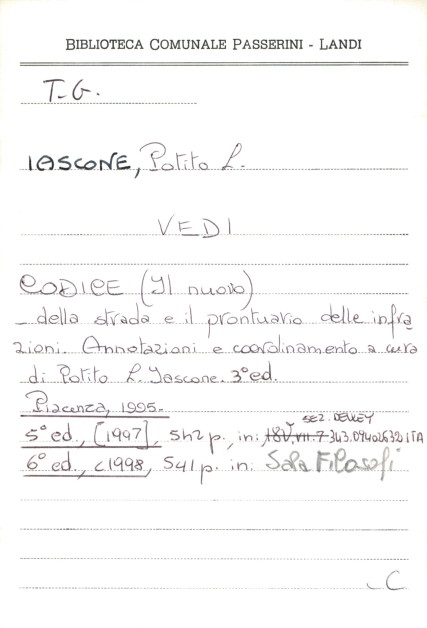 BIBLIOTECA COMUNALE PASSERINI - LANDI
T.G.
IASCONE, Potito L.
VEDI
CODICE (Il nuovo)
_ della strada e il prontuario delle infra
zioni. Annotazioni e coordinamento a cura
di Potito L. Iascone. 3° ed.
Piacenza, 1995.
SEZ. DEWEY
5° ed., [1997], 542 p., in: 18V.VII.7 343.09402632 ITA
6° ed., c1998, 541 p. in: Sala Filosofi
C